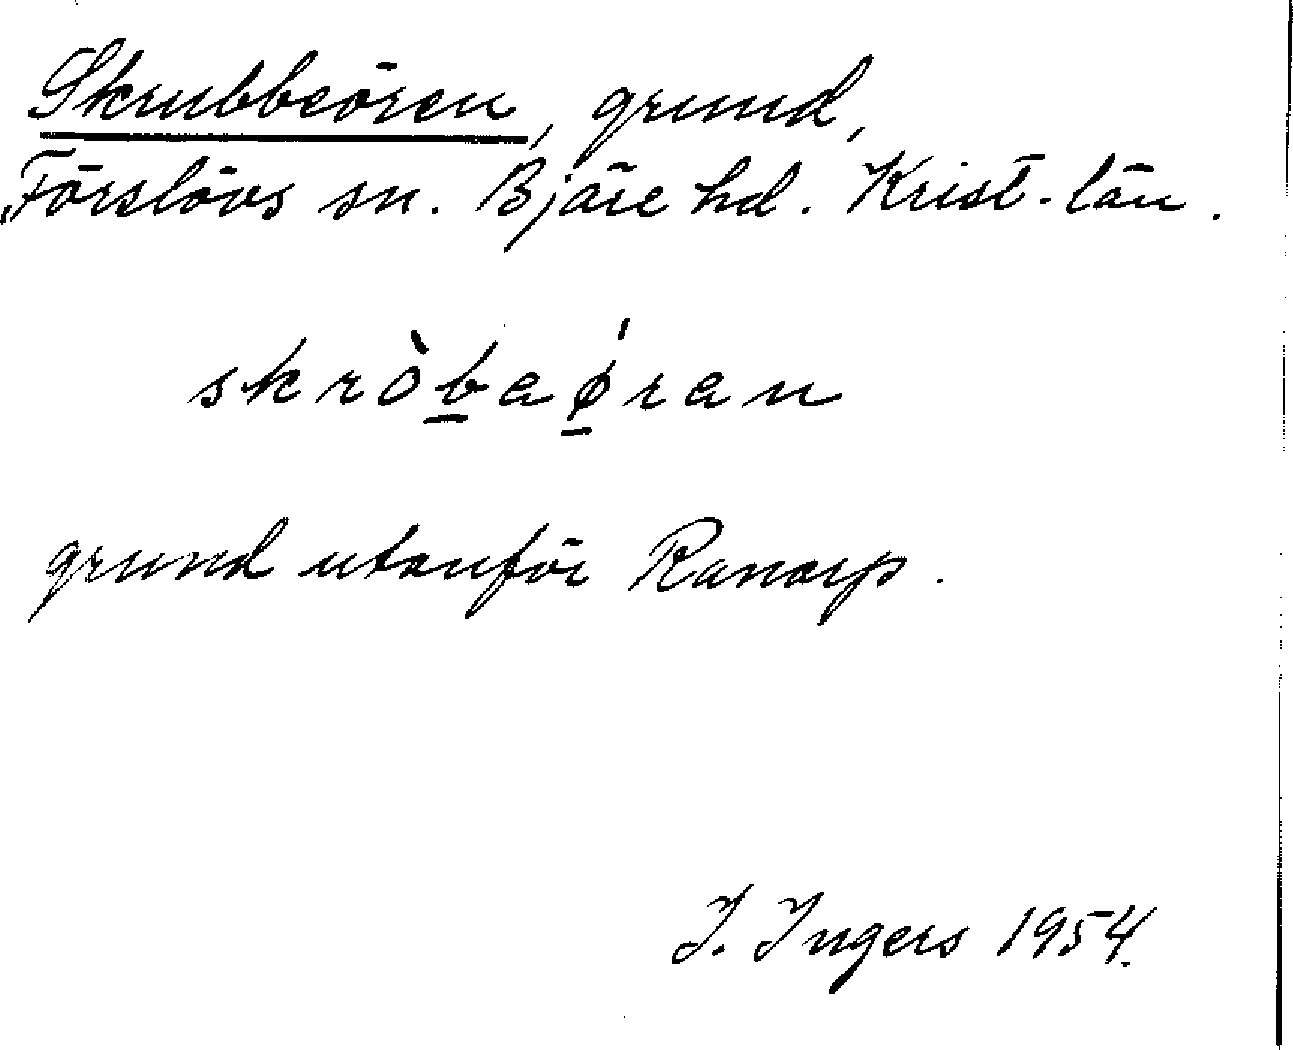 Skrubbeören, grund,
Förslövs sn. Bjäre hd. Krist. län.
skròb̲aǿ̲ran
grund utanför Ranarp.
I. Ingers 1954.